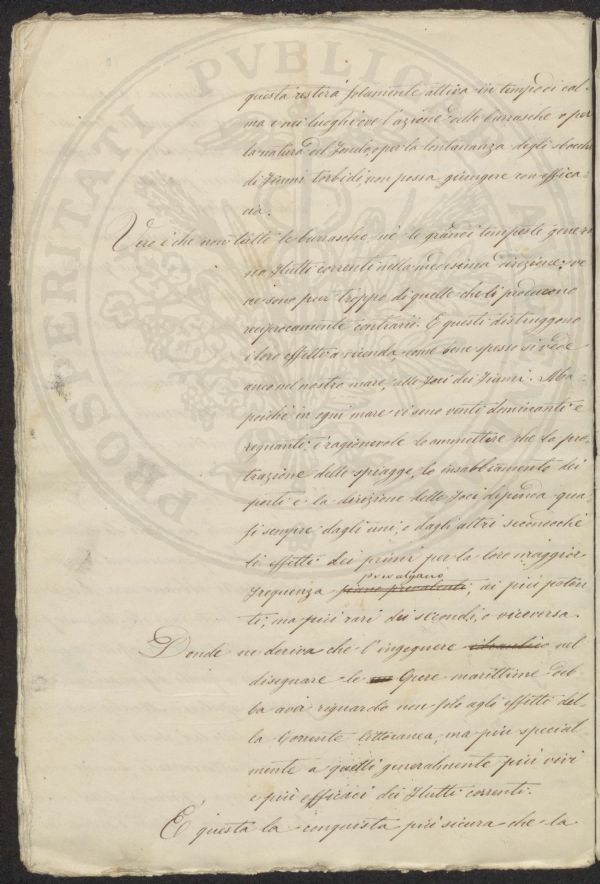 questa resterà solamente attiva in tempo di cal-
ma e nei luoghi ove l'azione delle burrasche o per
la natura del fondo, o per la lontananza degli sbocchi
di fiumi torbidi, non possa giungere con effica-
cia.
Vero è che non tutte le burrasche, nè le grandi tempeste genera-
no flutti correnti nella medesima direzione; ve
ne sono pur troppo di quelle che li producono
reciprocamente contrarii. E questi distruggono
i loro effetti a vicenda, come bene spesso si vede
anco nel nostro mare, alle foci dei fiumi. Ma
poichè in ogni mare vi sono venti dominanti e
regnanti è ragionevole lo ammettere che la pro-
trazione delle spiagge, lo insabbiamento dei
porti e la direzione delle foci dipenda qua-
si sempre dagli uni, o dagli altri secondochè
li effetti dei primi per la loro maggior
prevalgano
frequenza siano prevalenti, ai più poten-
ti, ma più rari dei secondi, o viceversa.
Donde ne deriva che l'ingegnere idraulico nel
disegnare le Opere marittime deb-
ba aver riguardo non solo agli effetti del-
la Corrente littoranea, ma più special-
mente a quelli generalmente più vivi
e più efficaci dei flutti correnti.
E' questa la conquista più sicura che la
PROSPERITATI PVBLICAE